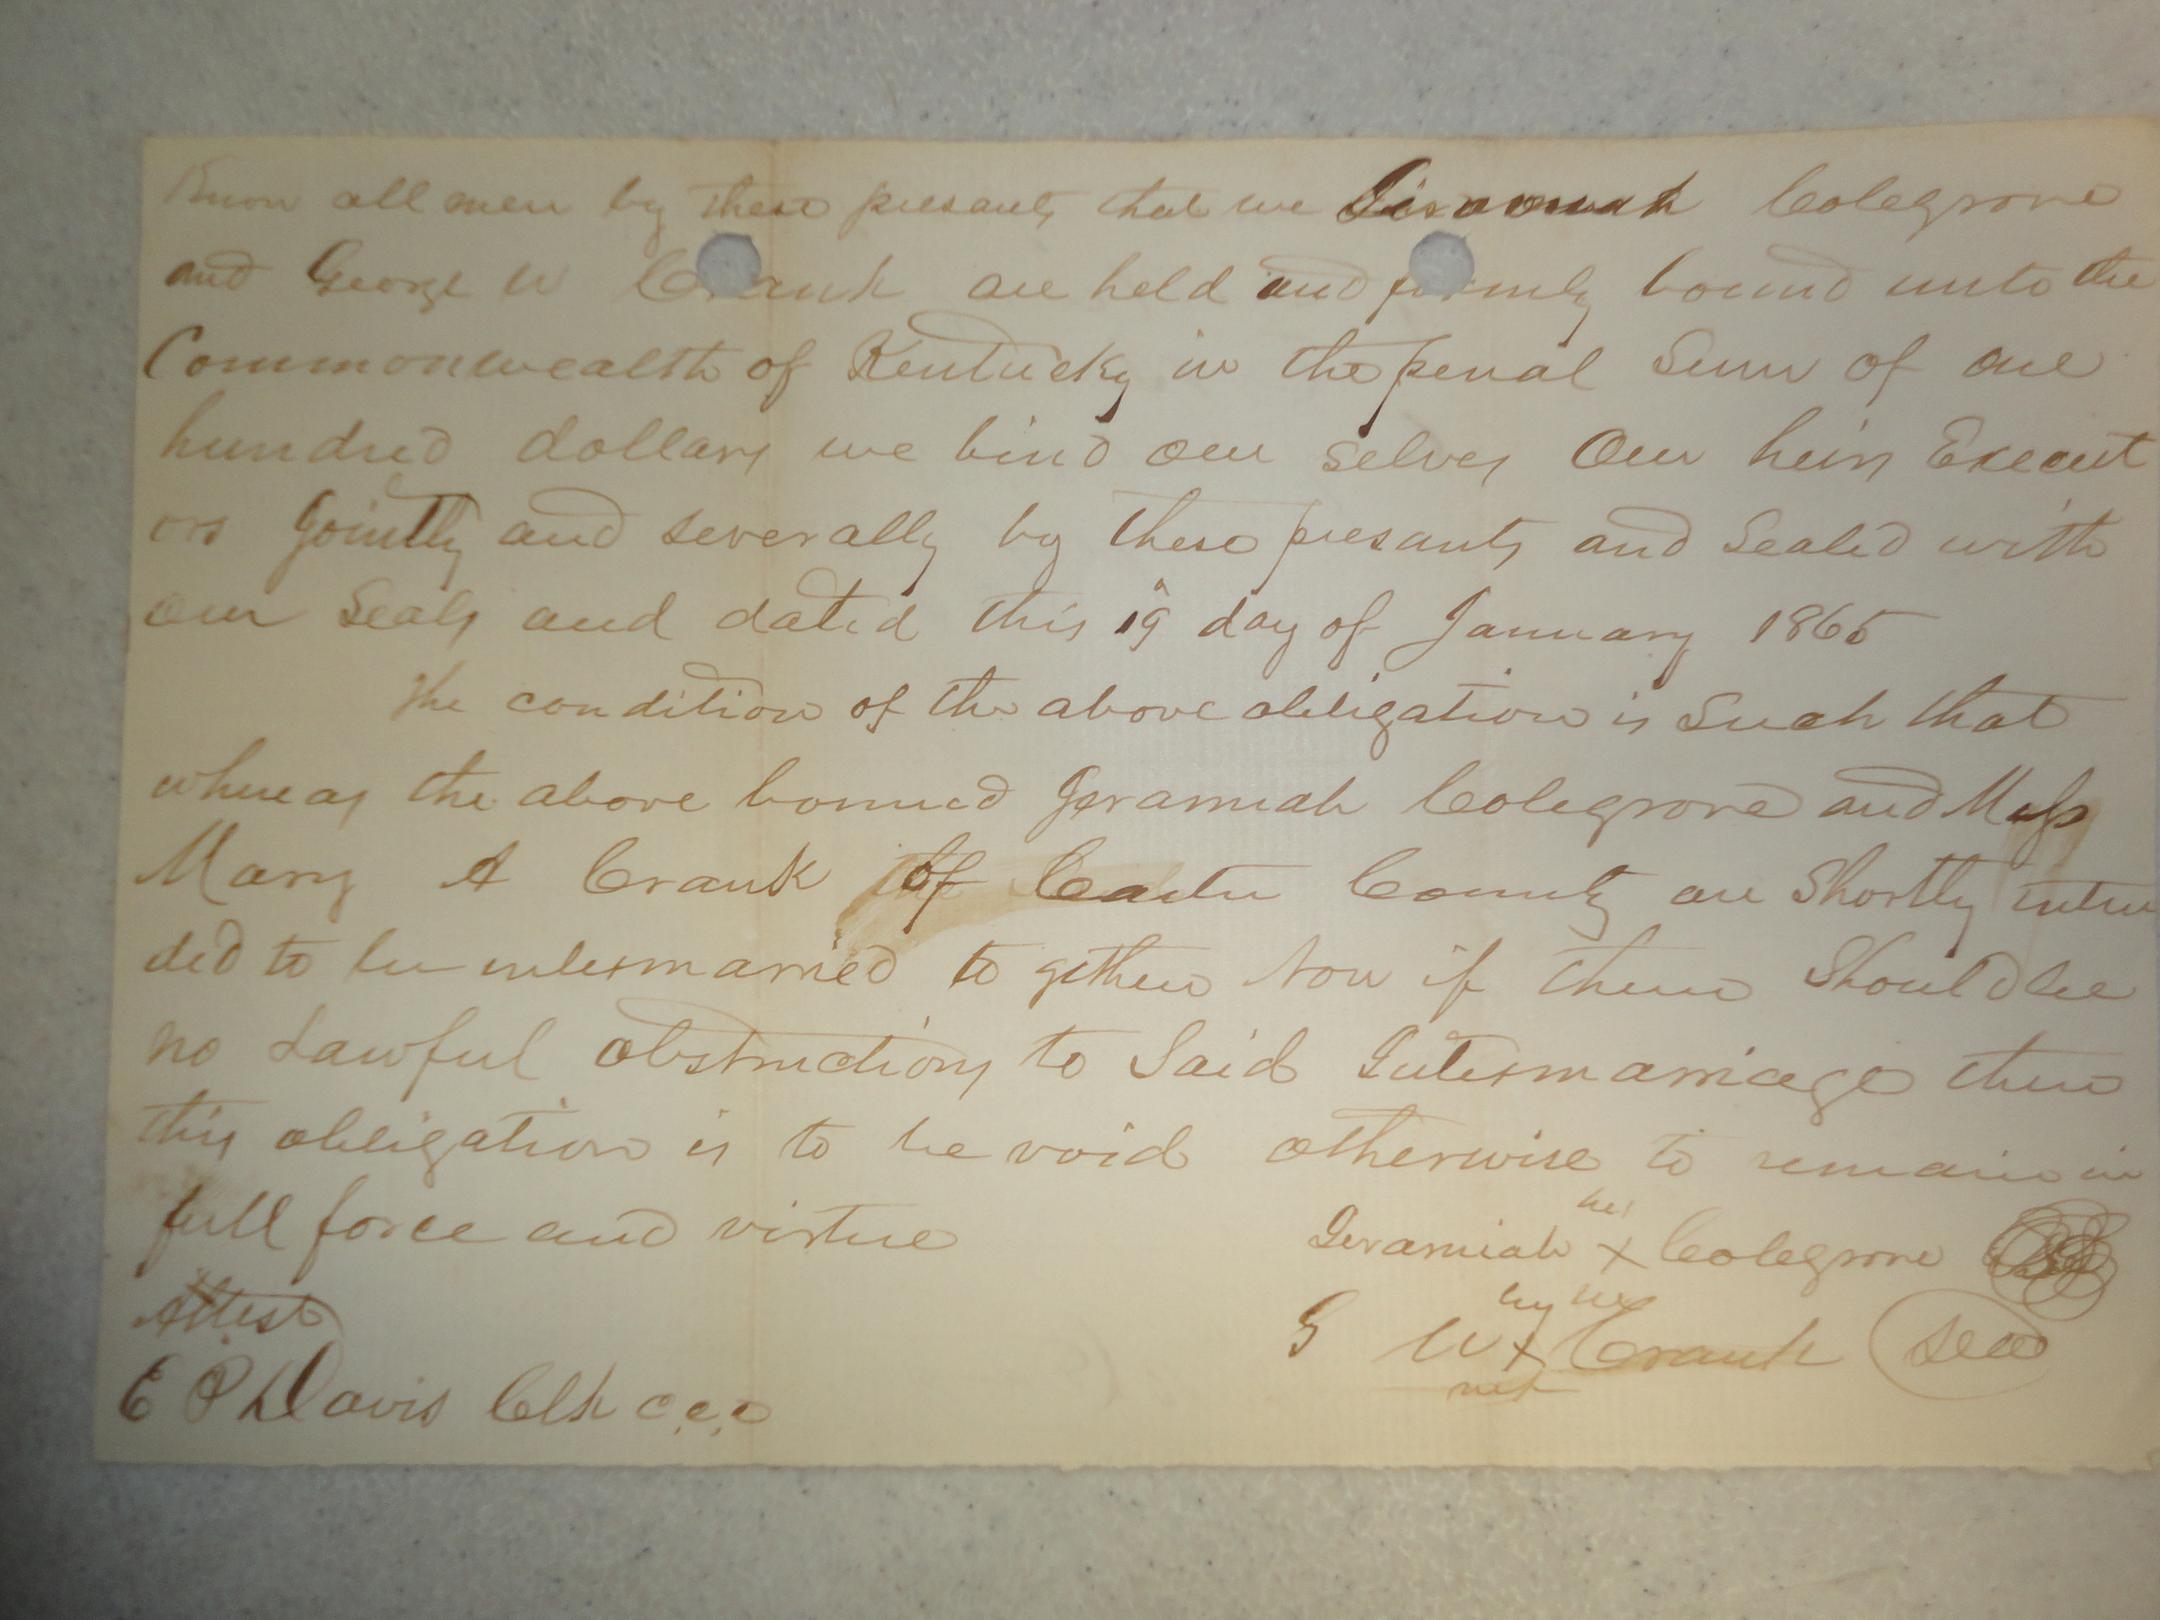 Know all men by these presants that we Jeramiah Colegrove
and George W Crank are held and firmly bound unto the
Commonwealth of Kentucky in the penal Sum of one
hundred dollars we bind our selves Our heirs Execut
ors Jointly and severally by these presants and Sealed with
our Seals and dated this 19 day of January 1865
The condition of the above obligation is Such that
whereas the above bound Jeramiah Colegrove and Miss
Mary A Crank of Carter County are Shortly inten
ded to be intermarried to gether Now if there Should be
no Lawful obstructions to Said Intermarriage then
this obligation is to be void otherwise to remain in
full force and virtue
his
Jeramiah x Colegrove
G W x Crank Seal
Attest
E P Davis Clk C.C.C